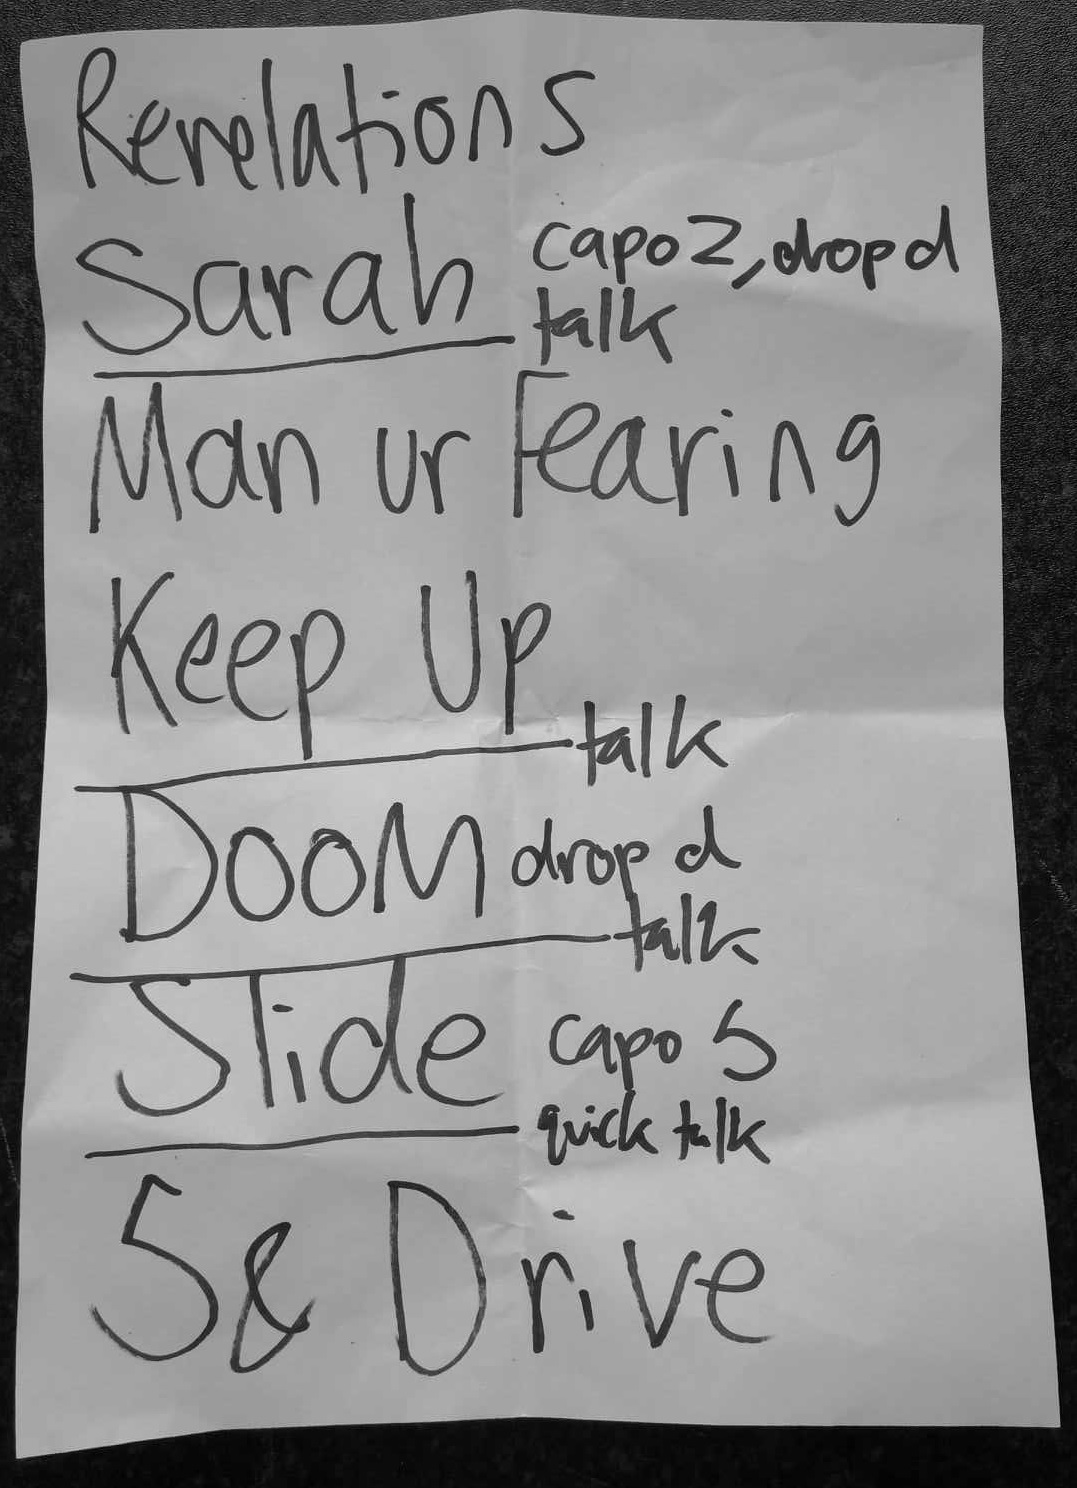 Revelations
Sarah capo 2, drop d
talk
Man ur Fearing
Keep Up
talk
DOOM drop d
talk
Slide capo 5
quick talk
5& Drive